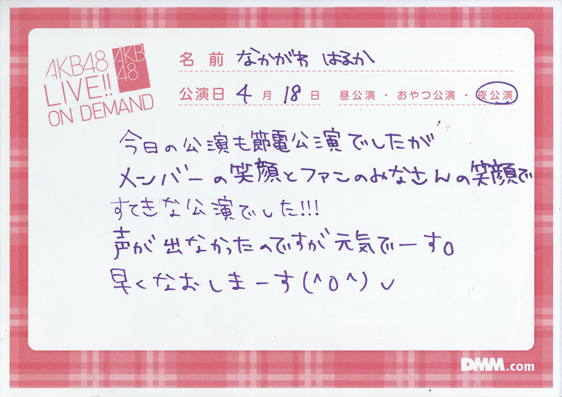 AKB48
LIVE!!
ON DEMAND
AKB
48
名前 なかがわ はるか
公演日 4月18日 昼公演・おやつ公演・夜公演
今日の公演も節電公演でしたが
メンバーの笑顔とファンのみなさんの笑顔で
すてきな公演でした!!!
声が出なかったのですが元気でーす。
早くなおしまーす(^o^)
DMM.com